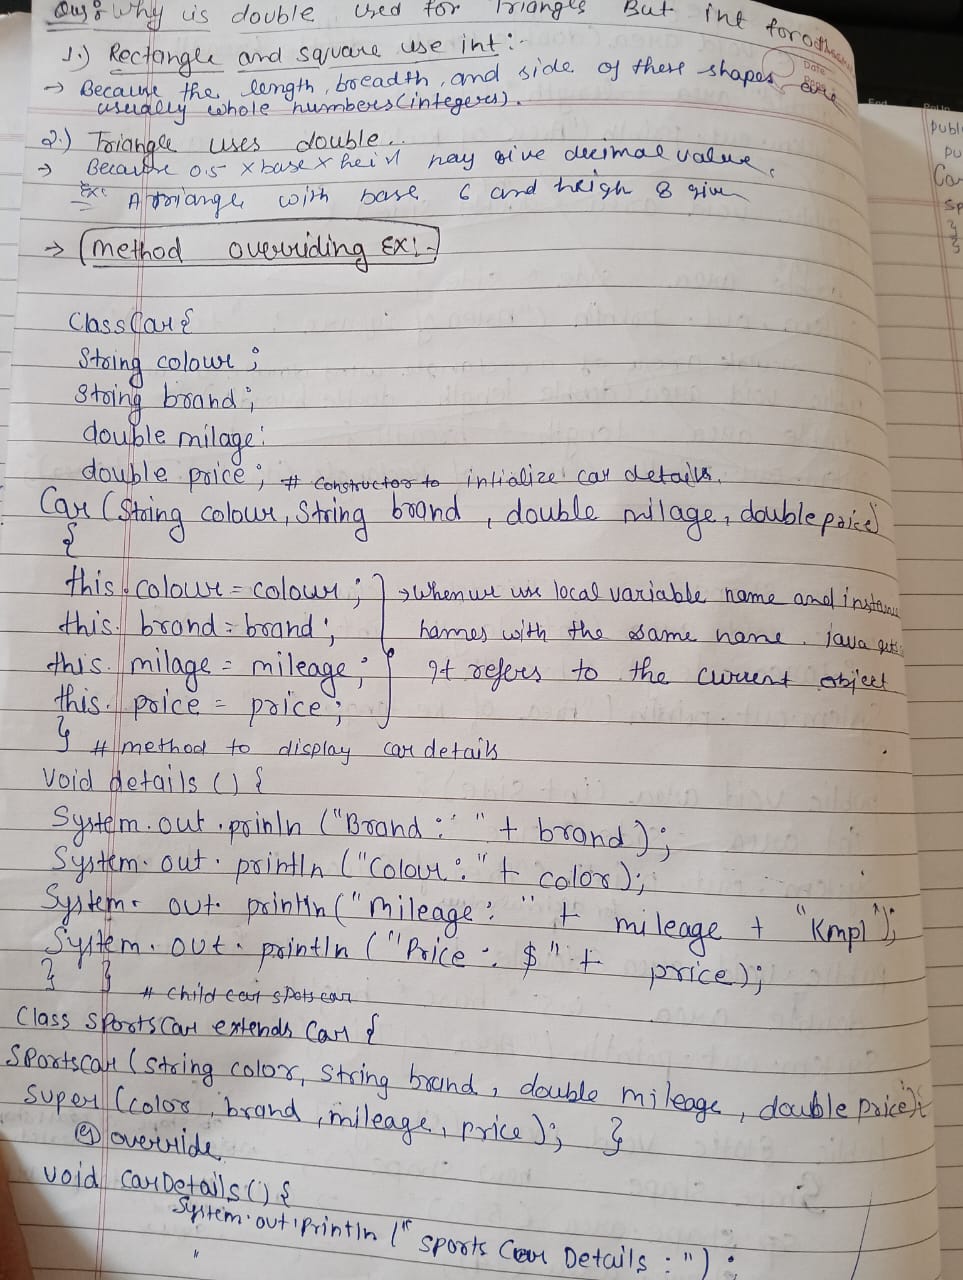 Ques: Why is double used for Triangle But int for
1.) Rectangle and square use int:-
→ Because the length, breadth, and side of these shapes are
usually whole numbers (integers).
2.) Triangle uses double..
→ Because 0.5 x base x heigh may give decimal value,
Ex: A triangle with base 6 and heigh 8 give
→ Method overriding Ex:-
Date
Class Car {
String colour ;
String brand ;
double milage:
double price ; # Constructor to intialize car details.
Car (String colour, String brand , double milage, double price)
{
this. colour = colour ; } → When we use local variable name and
this. brand = brand ; names with the same name. java
this. milage = mileage ; It refers to the current object
this. price = price ;
} # method to display car details
void details () {
System.out.prinln ("Brand : " + brand);
System. out. println ("Colour : " + color);
System. out. println ("mileage : " + mileage + "Kmpl");
System. out. println ("Price : $" + price);
} } # child car spots car
Class Sports Car extends Car {
Sportscar (String color, String brand , double mileage , double price){
Super (color , brand , mileage , price ); }
@ override
void CarDetails () {
System.out.println (" Sports Car Details : ") ;
"
publ
pu
Ca
Sp
}
}